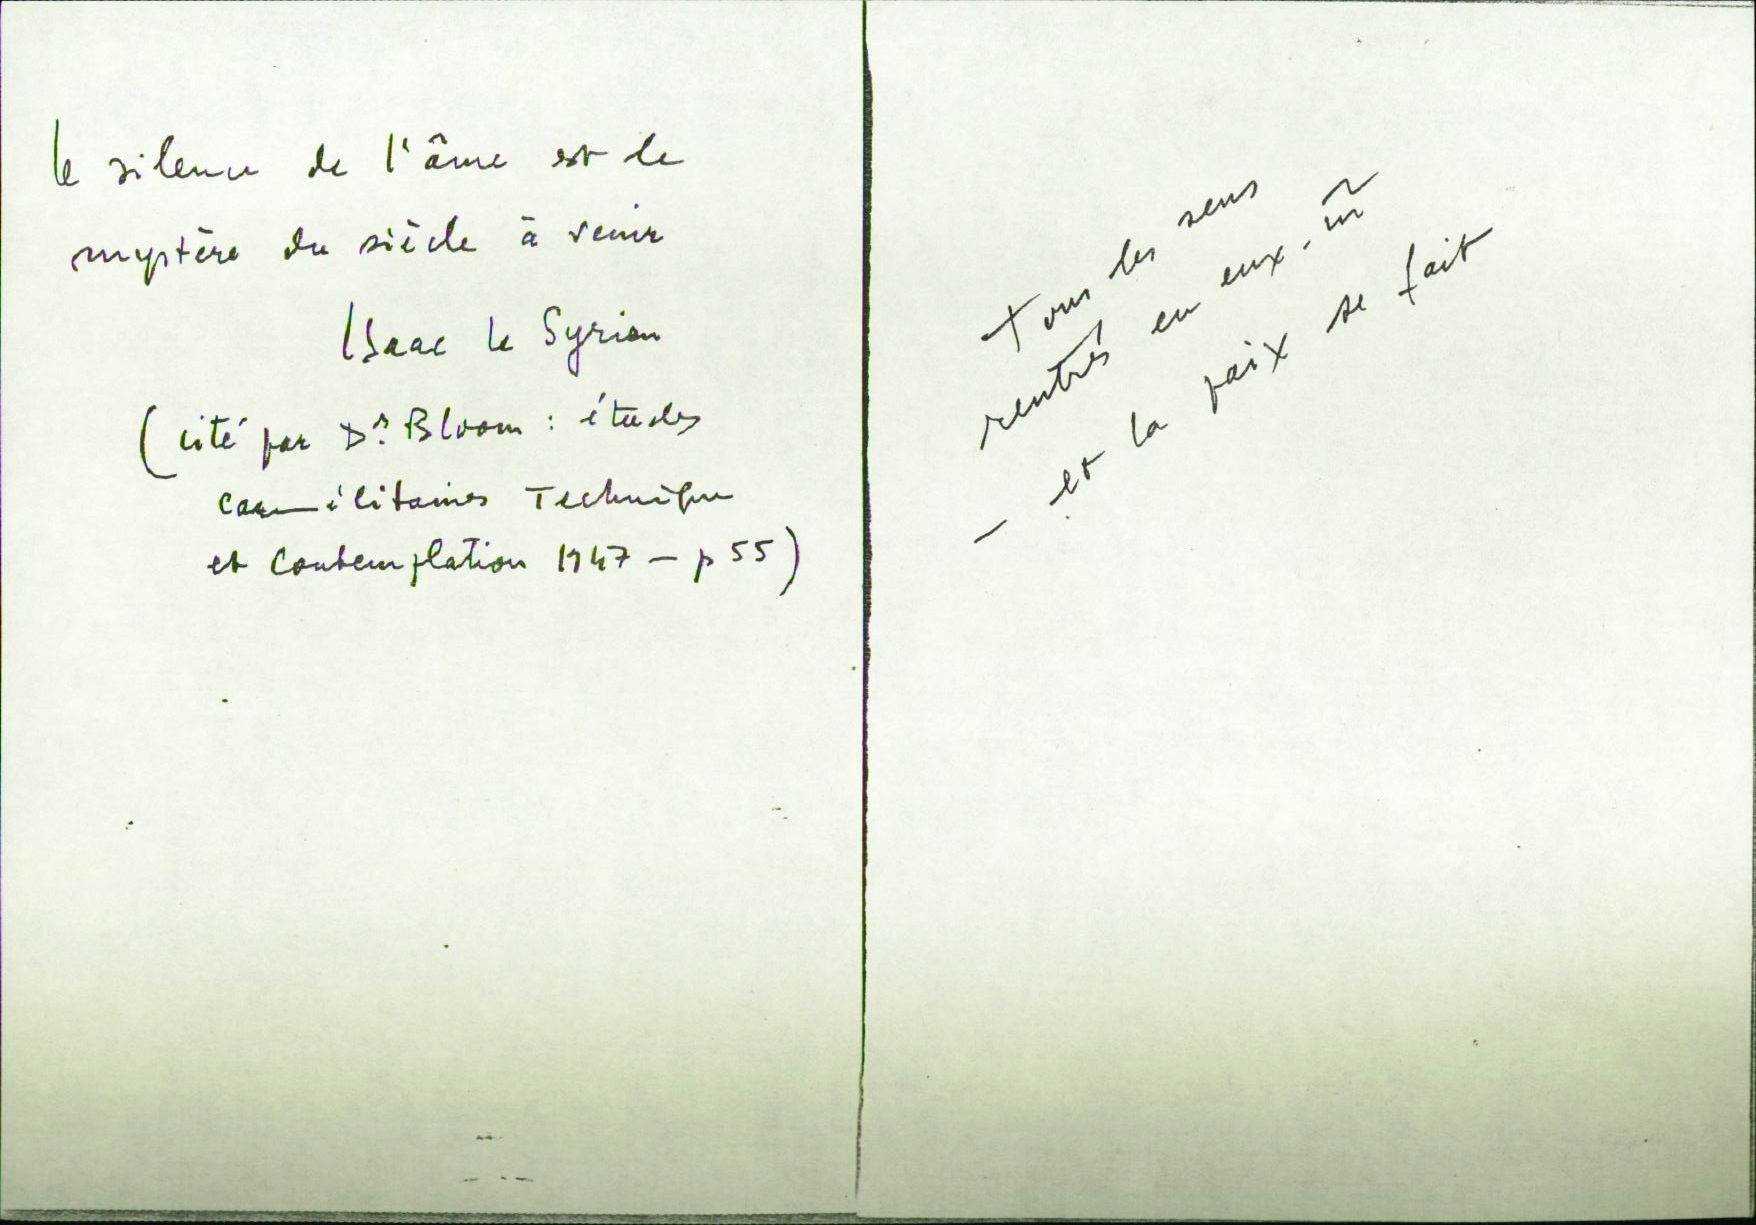 le silence de l'âme est le
mystère du siècle à venir
Isaac le Syrien
(cité par Dr. Bloom : études
carmélitaines Technique
et Contemplation 1947 – p 55)
Tous les sens
rentrés en eux-m̃
– et la paix se fait